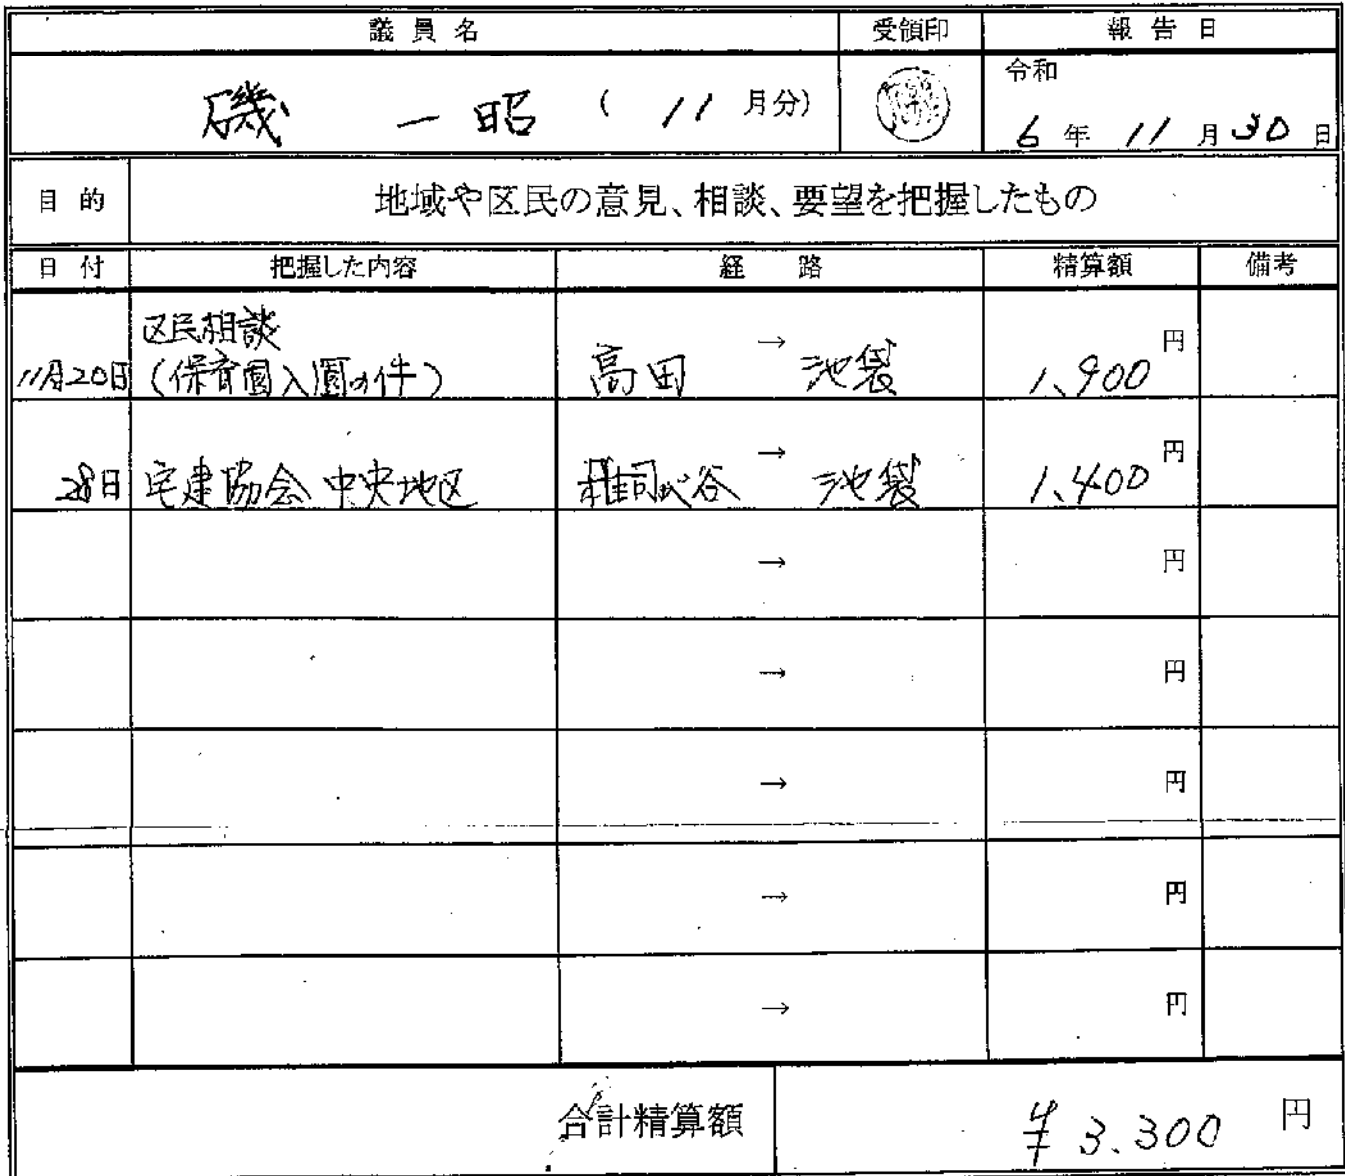 議員名 受領印 報告日
磯 一昭 ( 11 月分) 令和
6 年 11 月 30 日
目的 地域や区民の意見、相談、要望を把握したもの
日付 把握した内容 経路 精算額 備考
区民相談
11月20日 (保育園入園の件) 高田 → 池袋 1,900 円
28日 宅建協会 中央地区 雑司が谷 → 池袋 1,400 円
→ 円
→ 円
→ 円
→ 円
→ 円
合計精算額 ¥3.300 円